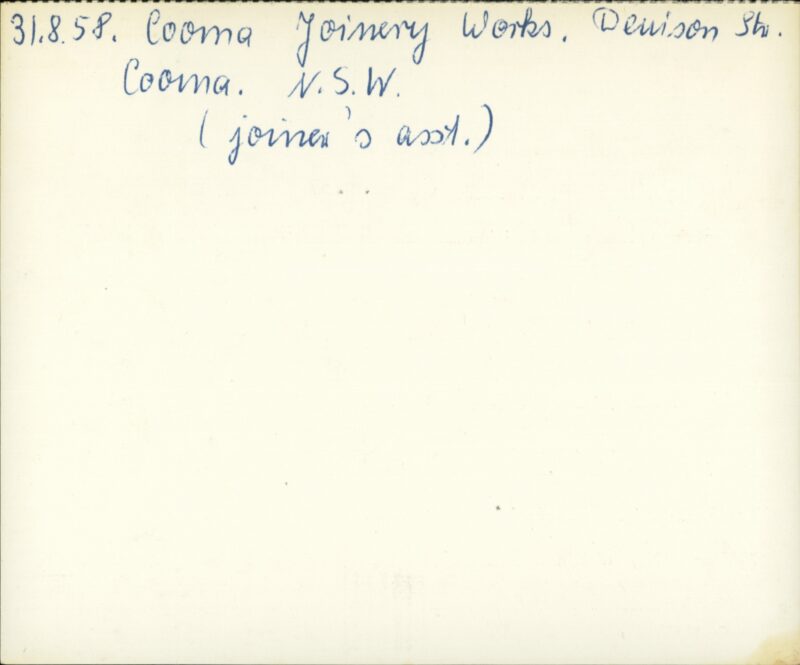 31.8.58. Cooma Joinery Works. Denison Str.
Cooma. N.S.W.
(joiner's asst.)